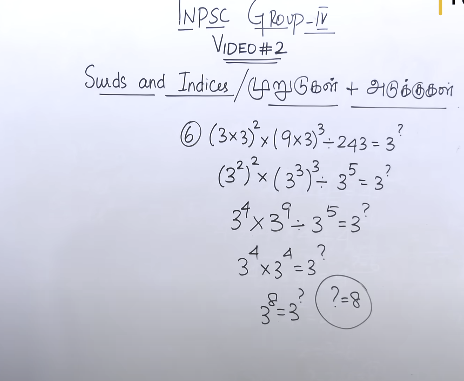 TNPSC GROUP-IV
VIDEO #2
Surds and Indices / முறடுகள் + அடுக்குகள்
⑥ (3×3)²×(9×3)³÷243=3^?
(3²)²×(3³)³÷3⁵=3^?
3⁴×3⁹÷3⁵=3^?
3⁴×3⁴=3^?
3⁸=3^? ?=8